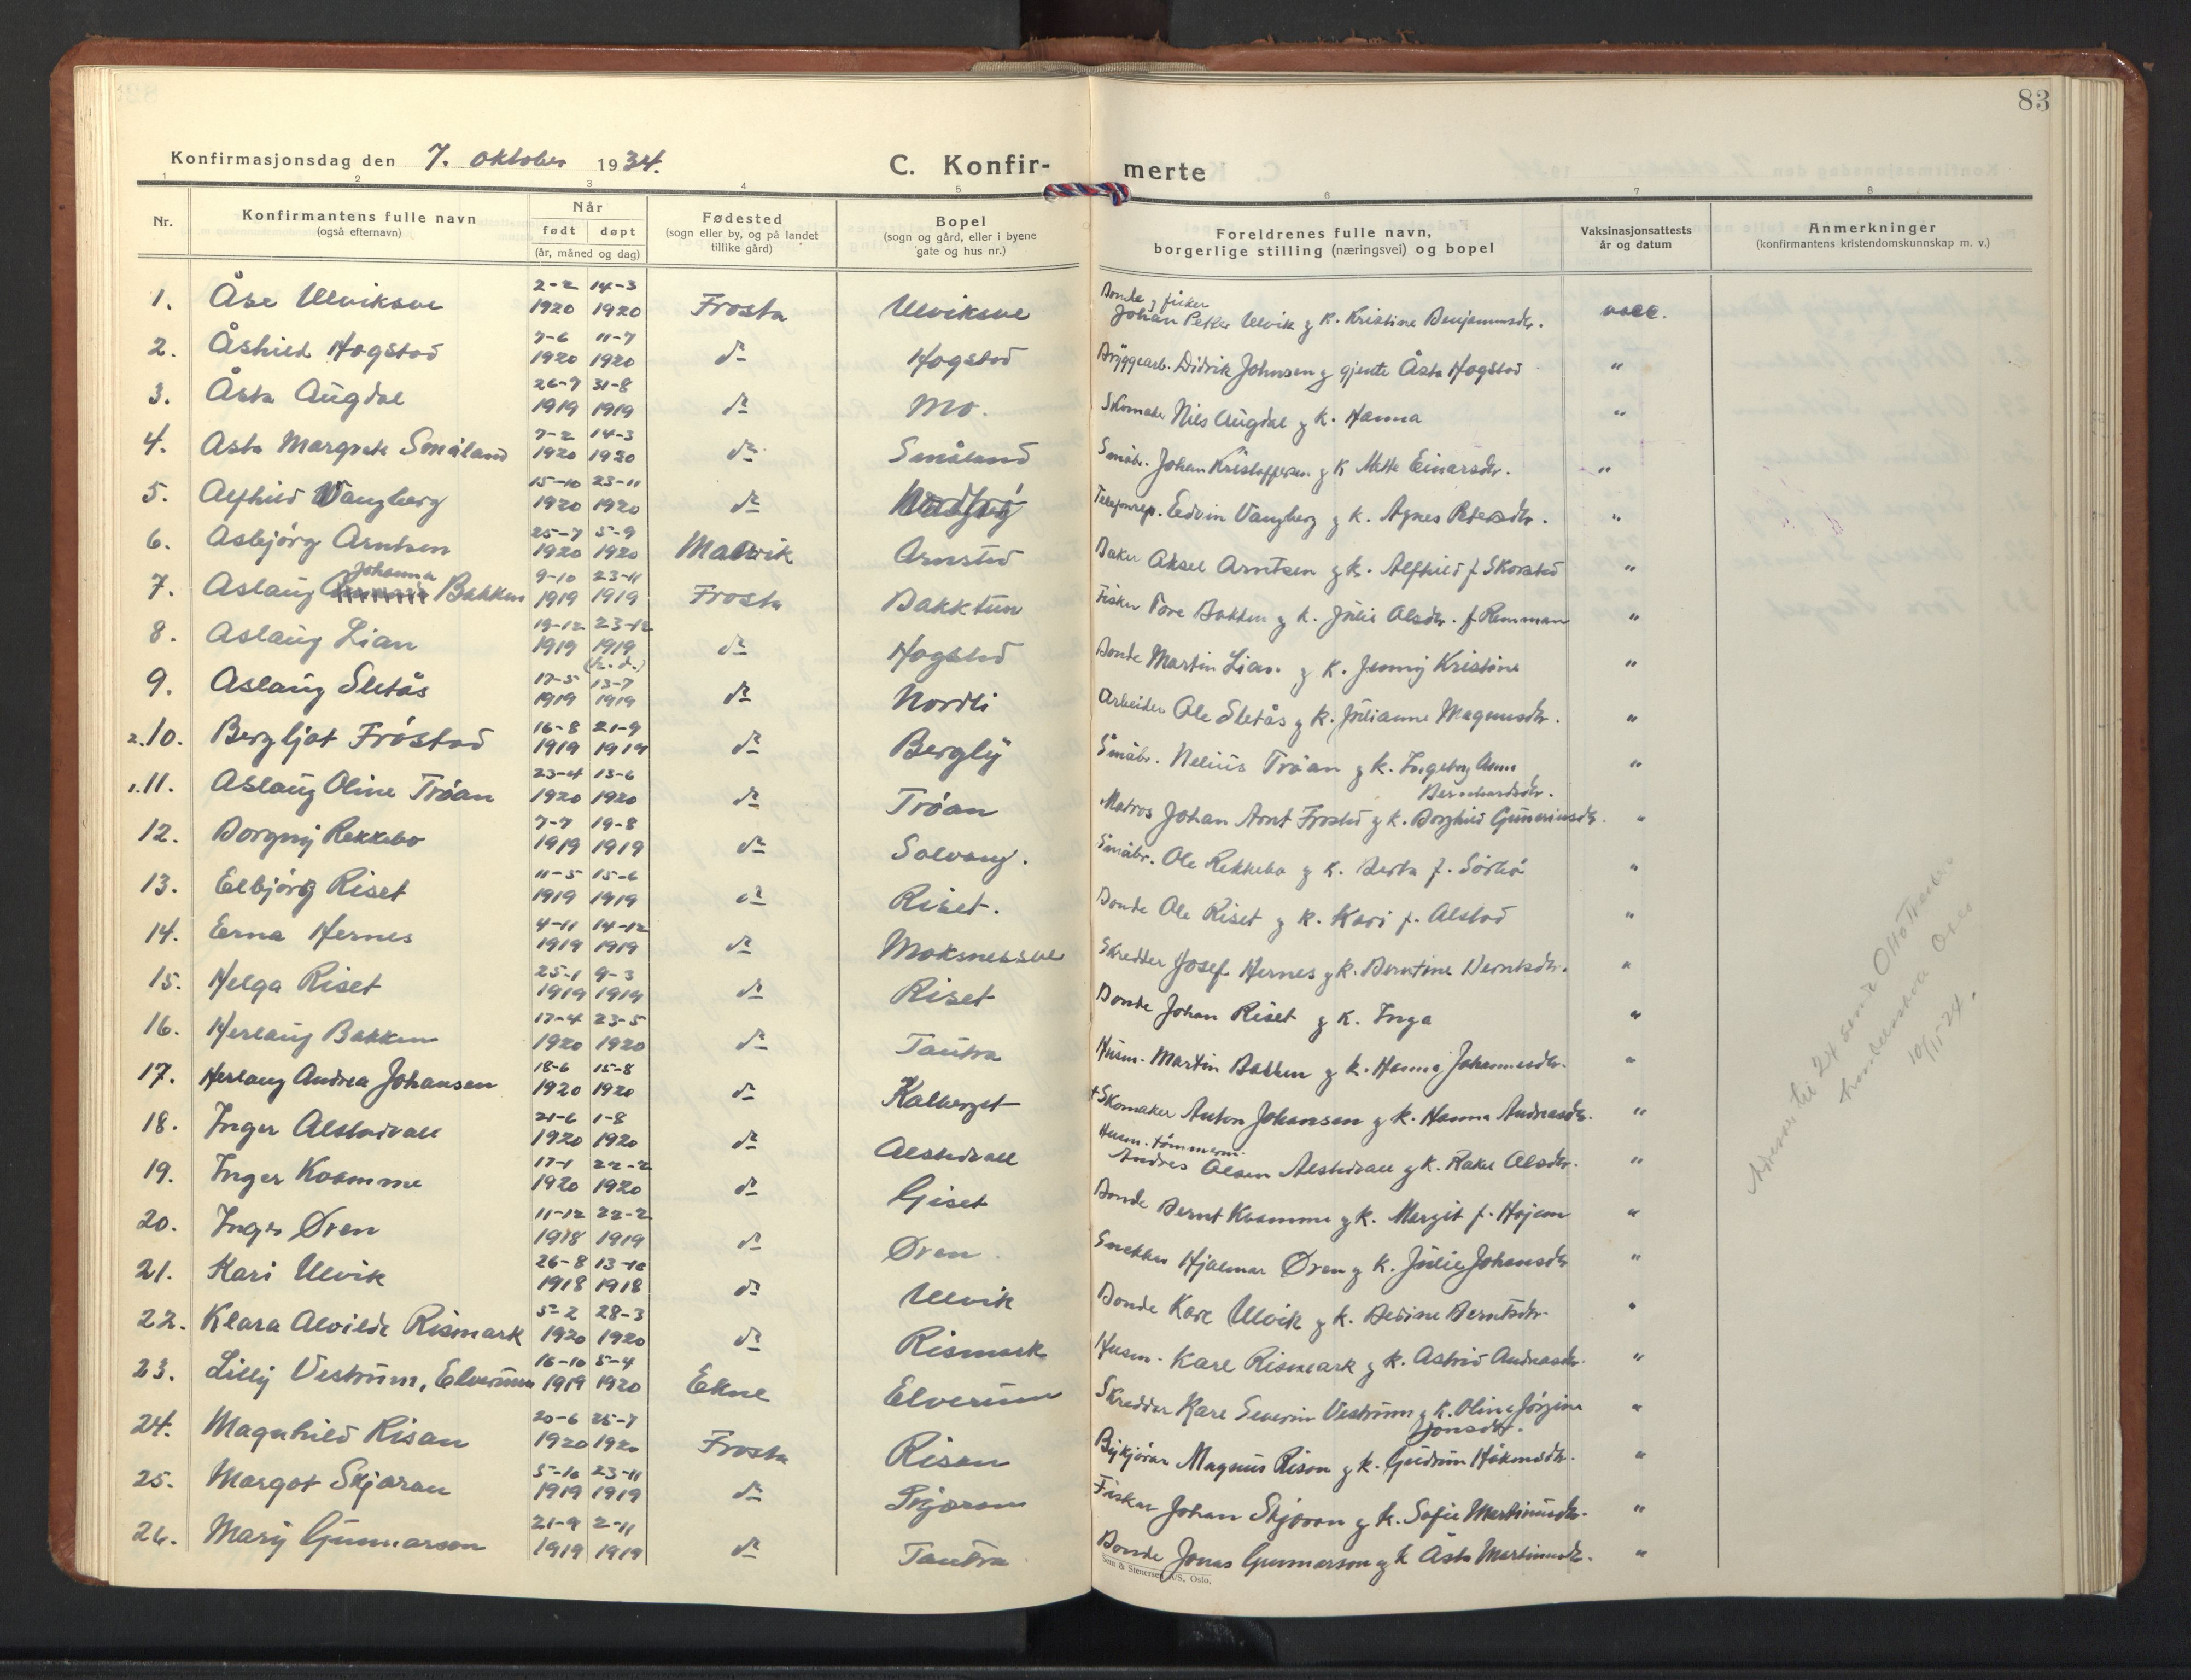 83
Konfirmasjonsdag den 7. oktober 1934. C. Konfir- merte
1 2 3 4 5 6 7 8
Nr. Konfirmantens fulle navn (også efternavn) Når født døpt (år, måned og dag) Fødested (sogn eller by, og på landet tillike gård) Bopel (sogn og gård, eller i byene gate og hus nr.) Foreldrenes fulle navn, borgerlige stilling (næringsvei) og bopel Vaksinasjonsattests år og datum Anmerkninger (konfirmantens kristendomskunnskap m. v.)
1. Åse Ulviksve 2-2 1920 14-3 1920 Frosta Ulviksve Bonde g fisker Johan Peter Ulvik g k. Kristine Benjaminsdtr. vacc.
2. Åshild Hogstad 7-6 1920 11-7 1920 do Hogstad Bryggearb. Didrik Johnsen g gjente Åsta Hogstad "
3. Åsta Augdal 26-7 1919 31-8 1919 do Mo. Skomaker Nils Augdal g k. Hanna "
4. Asta Margrete Småland 7-2 1920 14-3 1920 do Småland Småbr. Johan Kristoffersen g k Mette Einarsdtr. "
5. Alfhild Vangberg 15-10 1920 23-11 1920 do Telefonrep. Edvin Vangberg g k. Agnes Petersdtr. "
6. Asbjørg Arntsen 25-7 1920 5-9 1920 Malvik Arnstad Baker Aksel Arntsen g k. Alfhild f. Skorstad "
7. Aslaug Johanna Bakken 9-10 1919 23-11 1919 Frosta Bakktun Fisker Tore Bakken g k. Julie Olsdtr. f. Remman "
8. Aslaug Lian 19-12 1919 23-12 1919 (h.d.) do Hogstad Bonde Martin Lian g k. Jenny Kristine "
9. Aslaug Sletås 17-5 1919 13-7 1919 do Nordli Arbeider Ole Sletås g k. Julianne Magnusdtr. "
2. 10. Bergljot Frøstad 16-8 1919 21-9 1919 do Bergly Småbr. Nelius Trøan g k. Ingeborg Anna Bernhardsdtr. "
1. 11. Aslaug Oline Trøan 23-4 1920 13-6 1920 do Trøan Matros Johan Arnt Frostad g k. Borghild Guneriusdtr. "
12. Borgny Rekkebo 7-7 1919 19-8 1919 do Solvang. Småbr. Ole Rekkebo g k. Berta f. Sørbø "
13. Elbjørg Riset 11-5 1919 15-6 1919 do Riset. Bonde Ole Riset g k. Kari f. Alstad "
14. Erna Hernes 4-11 1919 14-12 1919 do Moksnessve Skredder Josef Hernes g k. Berntine Berntsdtr. "
15. Helga Riset 25-1 1919 9-3 1919 do Riset Bonde Johan Riset g k. Inga "
16. Herlaug Bakken 17-4 1920 23-5 1920 do Tautra Husm. Martin Bakken g k. Hanna Johannesdtr. "
17. Herlaug Andrea Johansen 18-6 1920 15-8 1920 do Kalberget + Skomaker Anton Johansen g k. Hanna Andreasdtr. "
18. Inger Alstadvall 21-6 1920 1-8 1920 do Alstadvall Husm. tømmerm. Andres Olsen Alstadvall g k. Rakel Olsdtr. "
19. Inger Kvamme 17-1 1920 22-2 1920 do Giset Bonde Bernt Kvamme g k. Margit f. Hojem "
20. Inger Øren 11-12 1918 22-2 1919 do Øren Snekker Hjalmar Øren g k. Julie Johansdtr "
21. Kari Ulvik 26-8 1918 13-10 1918 do Ulvik Bonde Karl Ulvik g k. Bedine Berntsdtr. "
22. Klara Alvilde Rismark 5-2 1920 28-3 1920 do Rismark Husm. Karl Rismark g k. Astrid Andreasdtr. "
23. Lilly Vestrum, Elverum 16-10 1919 5-4 1920 Ekne Elverum Skredder Karl Severin Vestrum g k. Oline Jørgine Jonsdtr. "
24. Magnhild Risan 20-6 1920 25-7 1920 Frosta Risan Bykjørar Magnus Risan g k. Gudrun Håkonsdtr. "
25. Margot Skjæran 5-10 1919 23-11 1919 do Skjæran Fisker Johan Skjæran g k. Sofie Martinusdtr. "
26. Mary Gunnarson 21-9 1919 2-11 1919 do Tautra Bonde Jonas Gunnarson g k Åsta Martinusdtr. "
Sem & Stenersen A/S, Oslo.
Attester til 24 send Otto
Oslo
10/11-24.